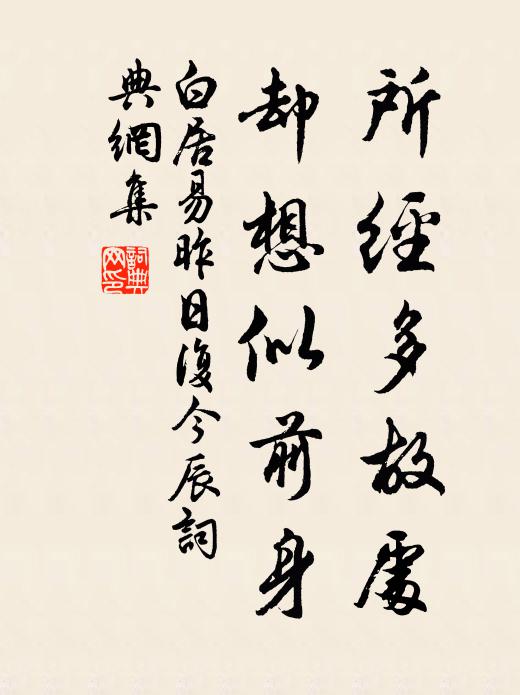 所經多故處
却想似前身
白居易昨日復今辰詞
典網集
詞典
網印